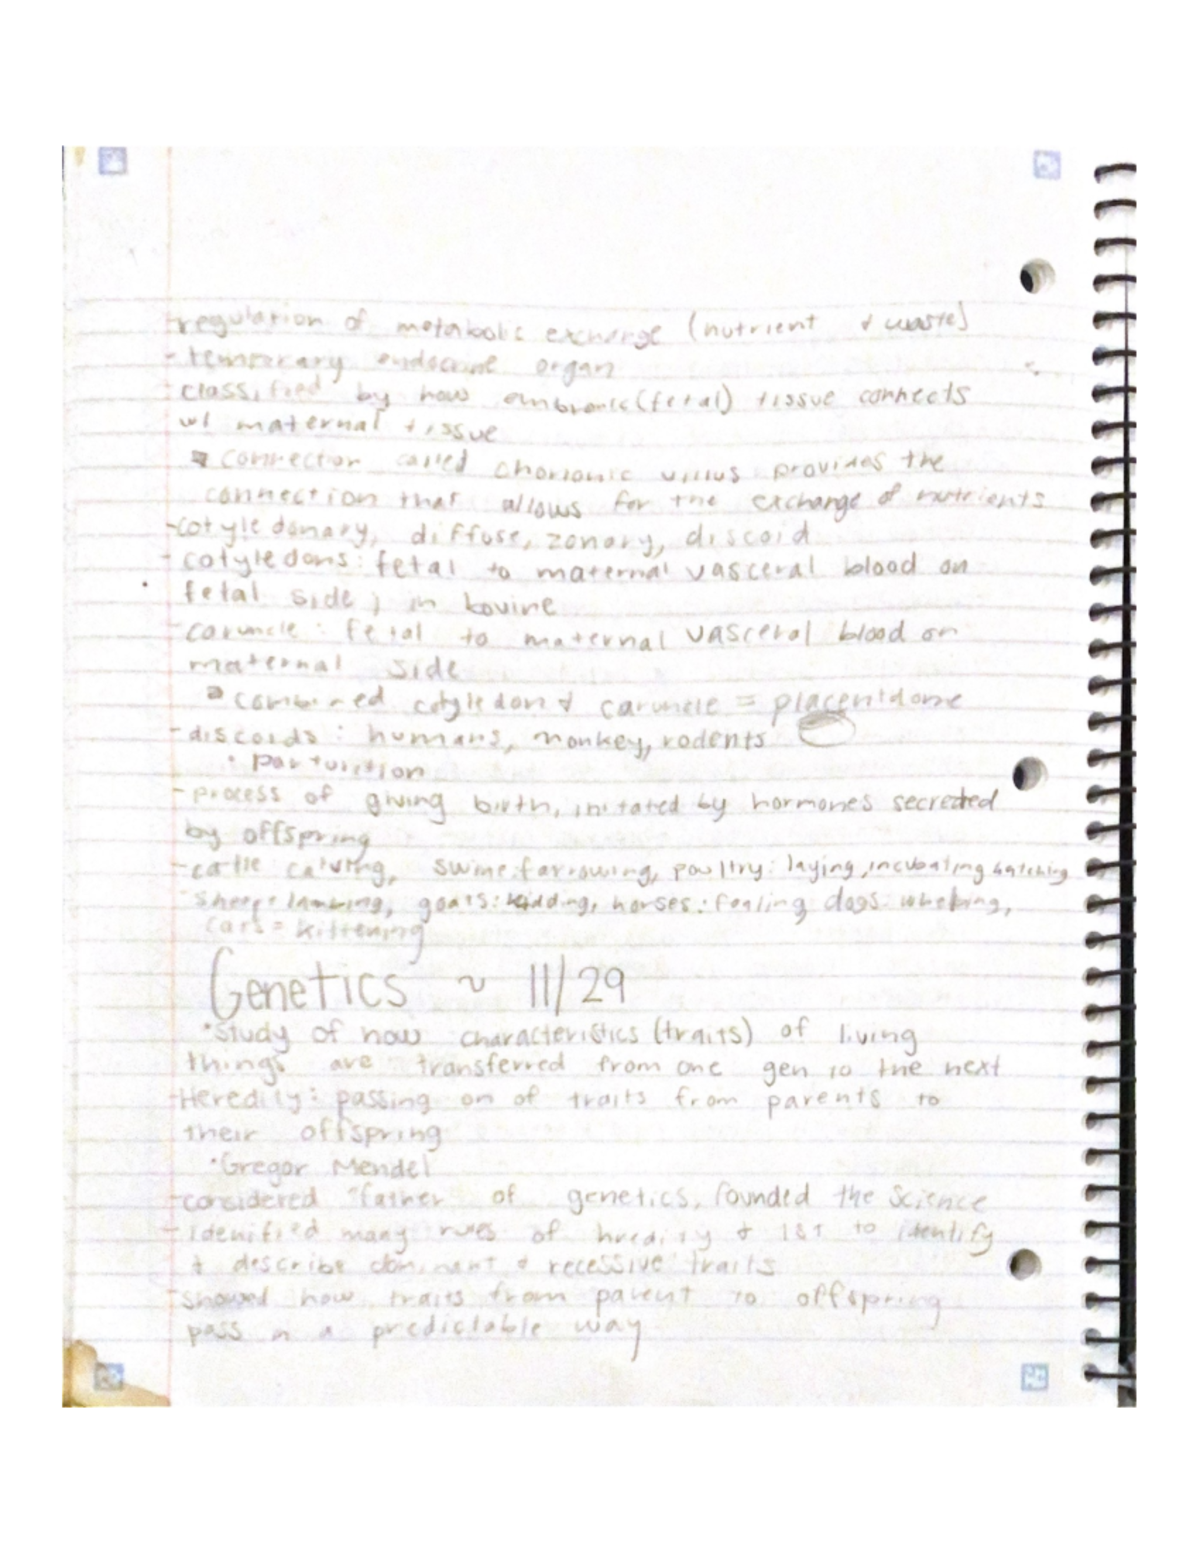 -regulation of metabolic exchange (nutrient & waste)
- temporary endocrine organ
- classified by how embronic (fetal) tissue connects
w/ maternal tissue
connection called chorionic villus provides the
connection that allows for the exchange of nutrients
-cotyledonary, diffuse, zonary, discoid
- cotyledons: fetal to maternal vasceral blood on
fetal side; in bovine
- caruncle: fetal to maternal vasceral blood on
maternal side
combined cotyledon & caruncle = placentdome
- discoids: humans, monkey, rodents
• parturition
- process of giving birth, initated by hormones secreted
by offspring
- cattle calving, swine: farrowing, poultry: laying, incubating hatching
sheep: lambing, goats: kidding, horses: foaling, dogs: whelping,
cats = kittening
Genetics ~ 11/29
• Study of how characteristics (traits) of living
things are transferred from one gen to the next
-Heredity: passing on of traits from parents to
their offspring
• Gregor Mendel
-considered "father of genetics, founded the science
- idenified many rules of hredity & 1st to identify
& describe dominent & recessive traits
-showed how traits from parent to offspring
pass in a predictable way